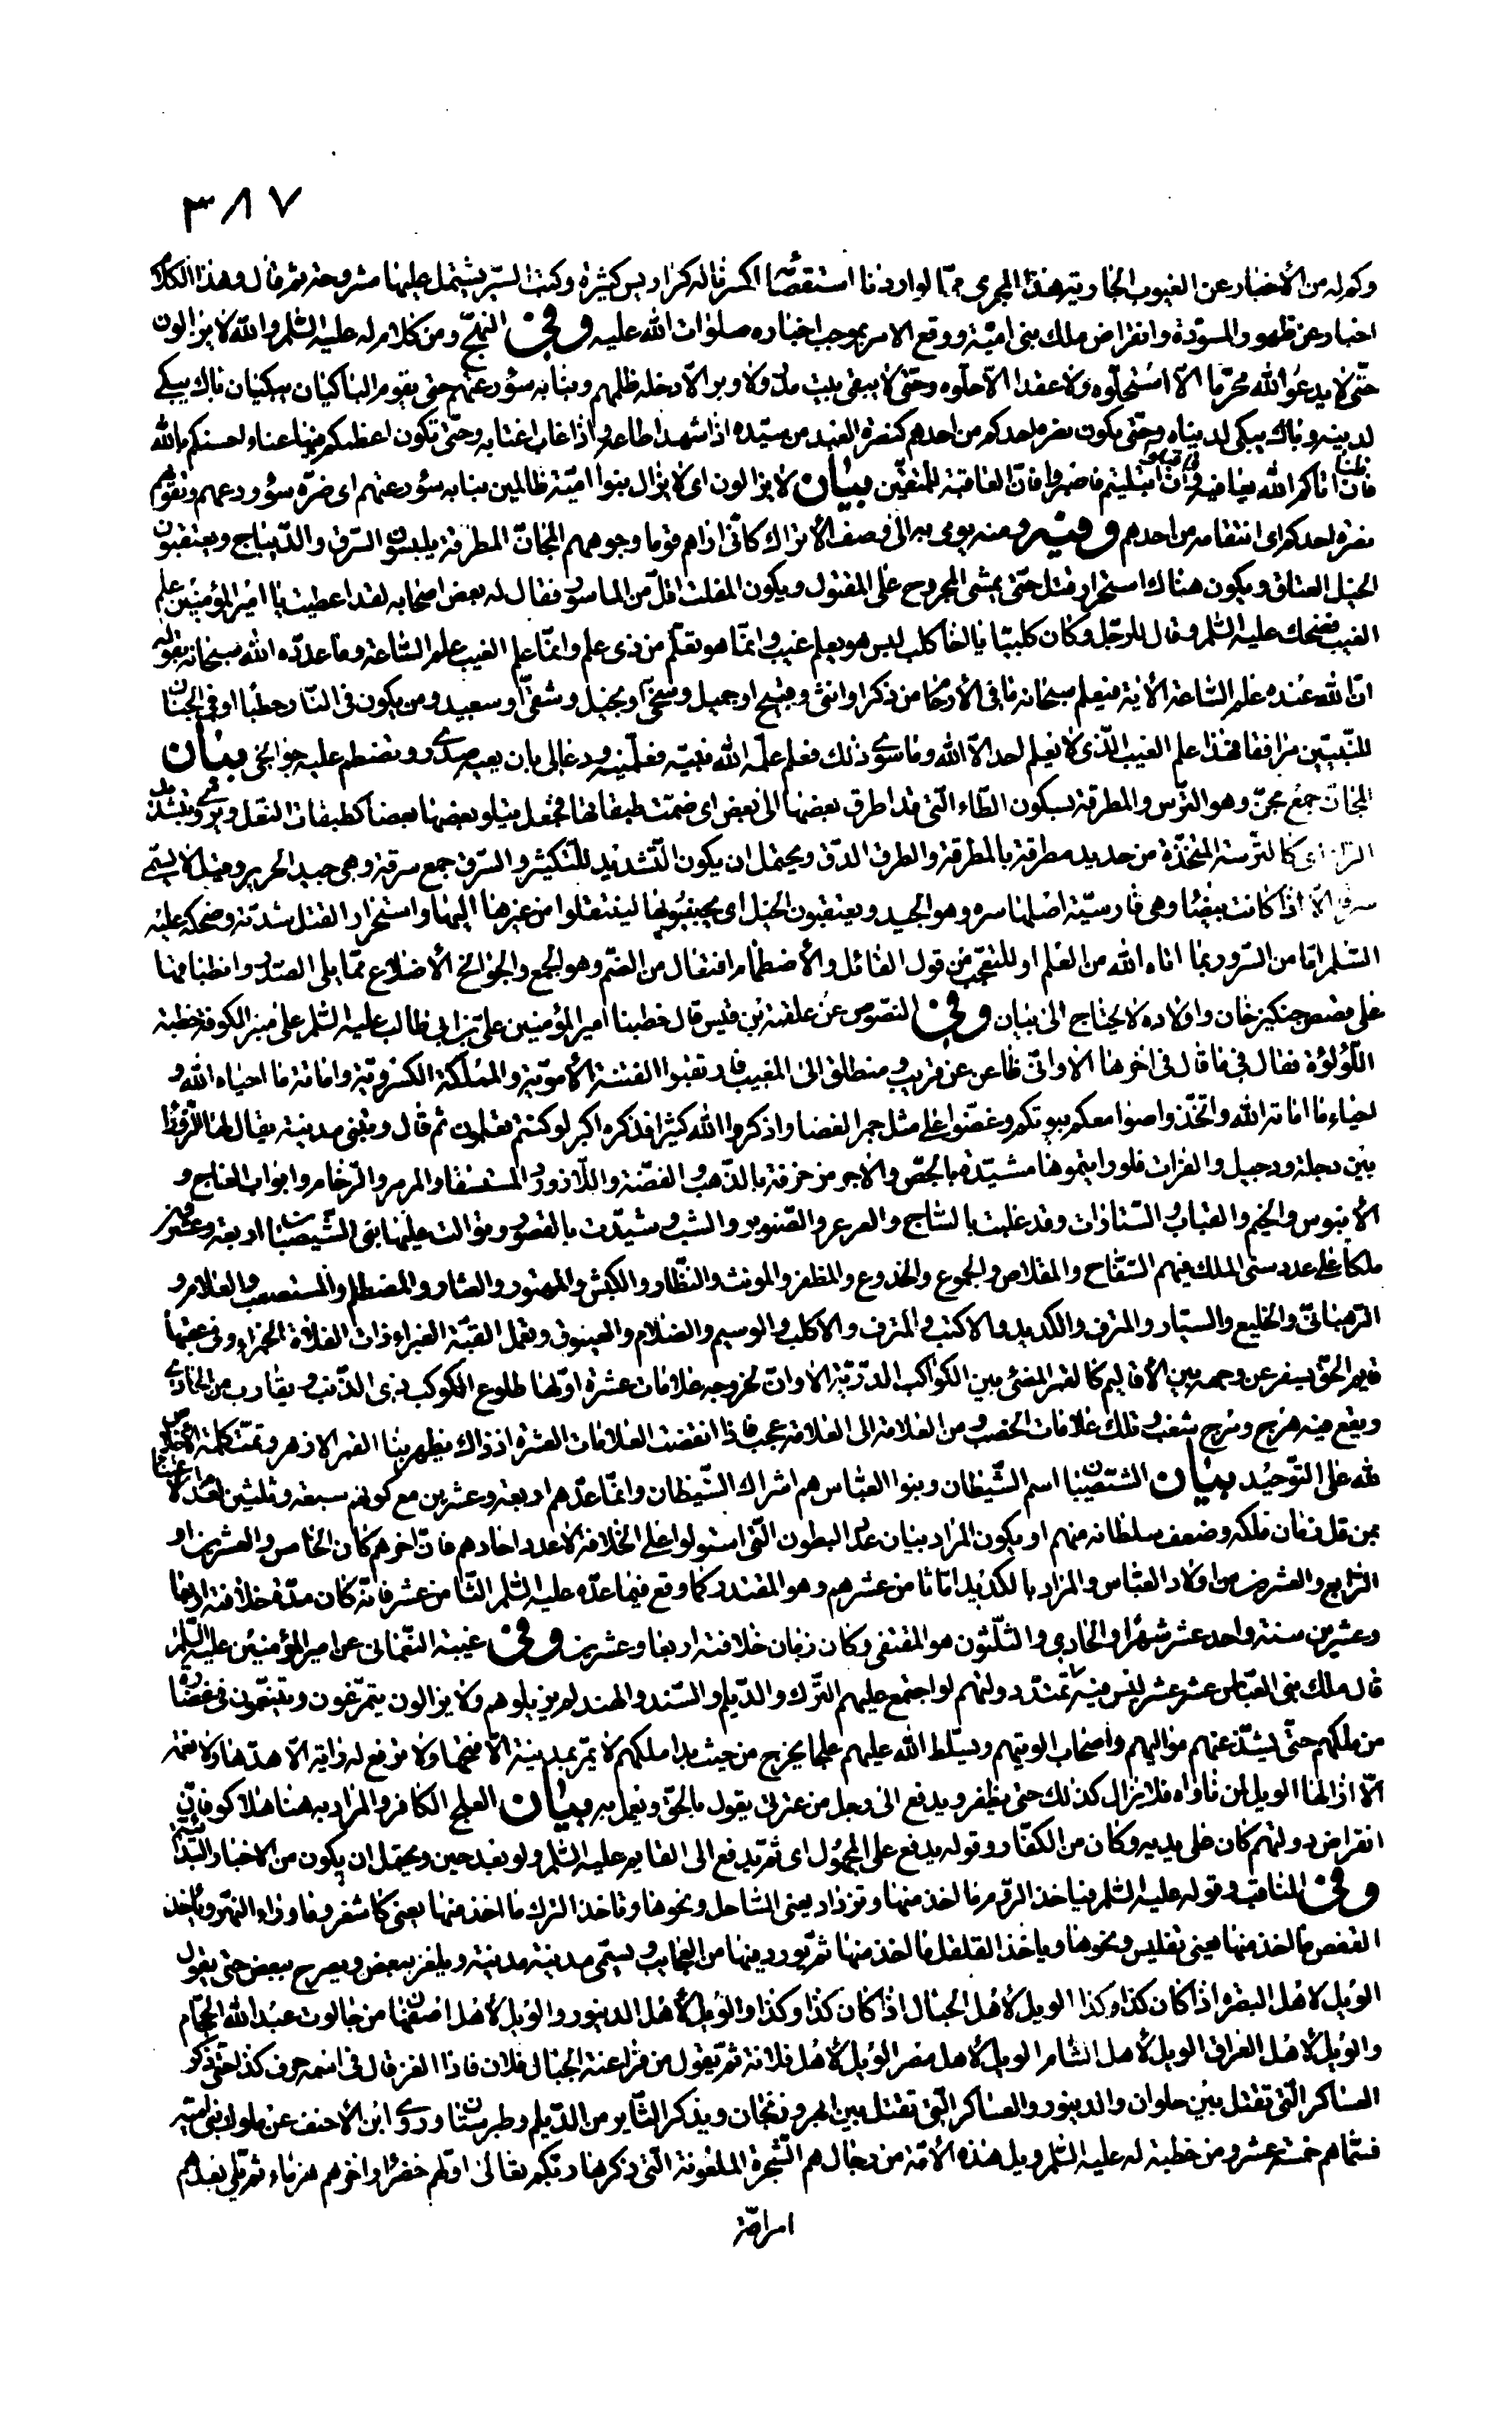 ٣٨٧
وكم له من الأخبار عن الغيوب الجارية هذا المجرى مما لو اردنا استقصائه لكسرنا له كراريس كثيرة وكتب السير يشتمل عليها مشروحة ثم قال وهذا الكلام
اخبار عن ظهور المسودة وانقراض ملك بنى امية ووقع الامر بموجب اخباره صلوات الله عليه وفى النهج ومن كلام له عليه السلم والله لا يزالون
حتى لا يدعوا لله محرما الا استحلوه ولا عقدا الا حلوه وحتى لا يبقى بيت مدر ولا وبر الا دخله ظلمهم ونبا به سوء رعيهم حتى يقوم الباكيان يبكيان باك يبكى
لدينه وباك يبكى لدنياه وحتى يكون نصرة احدكم من احدهم كنصرة العبد من سيده اذا شهد اطاعه واذا غاب اغتابه وحتى يكون اعظمكم فيها عناء احسنكم بالله
ظنا فان اتاكم الله بعافية فاقبلوا وان ابتليتم فاصبروا فان العاقبة للمتقين بيان لا يزالون اى لا يزال بنوا امية ظالمين نبا به سوء رعيهم اى ضره سوء ورعهم وتقويهم
نصرة احدكم اى انتقامه من احدهم وفيه ومنه يومى به الى وصف الأتراك كانى اراهم قوما وجوههم المجان المطرقة يلبسون السرق والديباج ويعتقبون
الخيل العتاق ويكون هناك استحرار قتل حتى يمشى المجروح على المقتول ويكون المفلت اقل من الماسور فقال له بعض اصحابه لقد اعطيت يا امير المؤمنين علم
الغيب فضحك عليه السلم وقال للرجل وكان كلبيا يا اخا كلب ليس هو بعلم غيب وانما هو تعلم من ذى علم وانما علم الغيب علم الساعة وما عدده الله سبحانه بقوله
ان الله عنده علم الساعة الأية فيعلم سبحانه ما فى الأرحام من ذكر او انثى وقبيح او جميل وسخى او بخيل وشقى او سعيد ومن يكون فى النار حطبا او فى الجنان
للنبيين مرافقا فهذا علم الغيب الذى لا يعلم احد الا الله وما سوى ذلك فعلم علمه الله نبيه فعلمنيه ودعا لى بان يعيه صدرى وتضطم عليه جوانحى بيان
المجان جمع مجن وهو الترس والمطرقة بسكون الطاء التى قد اطرق بعضها الى بعض اى ضمت طبقاتها فجعل يتلو بعضها بعضا كطبقات النعل ويروى بتشديد
الراء اى كالترسة المتخذة من حديد مطرقة بالمطرقة والطرق الدق ويحتمل ان يكون التشديد للتكثير والسرق جمع سرقة وهى جيد الحرير وقيل لا يسمى
سرقا الا اذا كانت بيضا وهى فارسية اصلها سره وهو الجيد ويعتقبون الخيل اى يحبسونها لينتقلوا من غيرها اليها واستحرار القتل شدته وضحكه عليه
السلم اما من السرور بما اتاه الله من العلم او للتعجب من قول القائل والأضطمام افتعال من الضم وهو الجمع والجوانح الأضلاع مما يلى الصدر وانطباقها
على قصص جنكيزخان واولاده لا يحتاج الى بيان وفى النصوص عن علقمة بن قيس قال خطبنا امير المؤمنين على بن ابى طالب عليه السلم على منبر الكوفة خطبته
اللؤلؤة فقال فى ما قال فى اخرها الا وانى ظاعن عن قريب ومنطلق الى المغيب فارتقبوا الفتنة الأموية والمملكة الكسروية واماتة ما احياه الله و
احياء ما اماته الله واتخذوا صوامعكم بيوتكم وعضوا على مثل جمر الغضا واذكروا الله كثيرا فذكره اكبر لو كنتم تعلمون ثم قال وتبنى مدينة يقال لها الزوراء
بين دجلة ودجيل والفرات فلو رايتموها مشيدة بالجص والاجر مزخرفة بالذهب والفضة واللازورد المستسقا والمرمر والرخام وابواب العاج و
الأبنوس والخيم والقباب والستارات وقد عليت بالساج والعرعر والصنوبر والشب وشيدت بالقصور وتوالت عليها بنى الشيصبان اربعة وعشرون
ملكا على عدد سنى الملك فيهم السفاح والمقلاص والجموع والخدوع والمظفر والمونث والنظار والكبش والمهتور والعشار والمضطلم والمستصعب والعلام و
الرهبانى والخليع والسيار والمترف والكديد والاكتب والمترف والاكلب والوسيم والضلام والعينوق وتعمل القبة الغبراء ذات الفلاة الحمراء وفى عقبها
قائم الحق يسفر عن وجهه بين الأقاليم كالقمر المضئ بين الكواكب الدرية الا وان لخروجه علامات عشرة اولها طلوع الكوكب ذى الذنب ويقارب من الحادى
ويقع فيه هرج ومرج شغب وتلك علامات الخصب ومن العلامة الى العلامة عجب فاذا انقضت العلامات العشرة اذ ذاك يظهر بنا القمر الازهر وتمت كلمة الأخلاص
لله على التوحيد بيان الشيصبان اسم الشيطان وبنوا العباس هم اشراك الشيطان وانما عدهم اربعة وعشرين مع كونهم سبعة وثلثين لعدم الاعتناء
بمن قل زمان ملكه وضعف سلطانه منهم او يكون المراد بيان عدد البطون التى استولوا على الخلافة لا عدد احادهم فان اخرهم كان الخامس والعشرين او
الرابع والعشرين من اولاد العباس والمراد بالكديد اما ثامن عشرهم وهو المقتدر كما وقع فيما عده عليه السلم الثامن عشر فانه كان مدة خلافته اربعا
وعشرين سنة واحد عشر شهرا والحادى والثلثون هو المقتفى وكان زمان خلافته اربعا وعشرين وفى غيبة النعمانى عن امير المؤمنين عليه السلم
قال ملك بنى العباس عشر عشر ليس فيه تمتد دولتهم لو اجتمع عليهم الترك والديلم والسند والهند لم يزيلوهم ولا يزالون يتمرغون ويتنعمون فى غضارة
من ملكهم حتى يشذ عنهم مواليهم واصحاب الويتهم ويسلط الله عليهم علجا يخرج من حيث بدا ملكهم لا يمر بمدينة الا فتحها ولا ترفع له راية الا هدها ولا نعمة
الا ازالها الويل لمن ناواه فلا يزال كذلك حتى يظفر ويدفع الى رجل من عترتى يقول بالحق ويعمل به بيان العلج الكافر والمراد به هنا هلاكو فان
انقراض دولتهم كان على يديه وكان من الكفار وقوله يدفع على المجهول اى ثم يدفع الى القايم عليه السلم ولو بعد حين ويحتمل ان يكون من الاخبار البدائية
وفى المناقب وقوله عليه السلم فياخذ الروم ما اخذ منها وتزداد يعنى الساحل ونحوها وتاخذ الترك ما اخذ منها يعنى كاشغر وما وراء النهر وياخذ
القفص ما اخذ منها يعنى تفليس ونحوها وياخذ القلقل ما اخذ منها ثم يورد فيها من العجايب ويسمى مدينة مدينة ويلغز ببعض ويصرح ببعض حتى يقول
الويل لاهل البصرة اذا كان كذا وكذا الويل لأهل الجبال اذا كان كذا وكذا والويل لأهل الدينور والويل لأهل اصفهان من جالوت عبد الله الحجام
والويل لأهل العراق الويل لأهل الشام الويل لأهل مصر الويل لأهل فلانة ثم يقول من فراعنة الجبال فلان فاذا الغز قال فى اسمه حرف كذا حتى ذكر
العساكر التى تقتل بين حلوان والدينور والعساكر التى تقتل بين ابهر وزنجان ويذكر الثاير من الديلم وطبرستان وروى ابن الأحنف عن ملوك بنى امية
فسماهم خمسة عشر ومن خطبة له عليه السلم ويل هذه الأمة من رجال هم الشجرة الملعونة التى ذكرها ربكم تعالى اولهم خضراء واخرهم هزماء ثم تلى بعدهم
امر امة